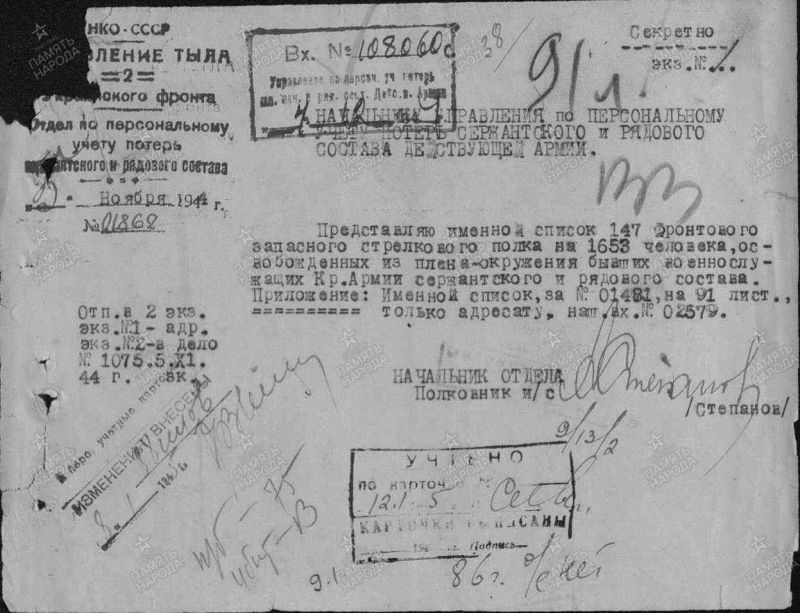 НКО-СССР
ЛЕНИЕ ТЫЛА
=2=
Украинского фронта
Отдел по персональному
учету потерь
сержантского и рядового состава
Ноября 1944 г.
№ 01868
Вх. № 108060с
Управление по персон. уч. потерь
38/
91 л.
Секретно
экз.№ 1.
НАЧАЛЬНИКУ УПРАВЛЕНИЯ по ПЕРСОНАЛЬНОМУ
УЧЕТУ ПОТЕРЬ СЕРЖАНТСКОГО и РЯДОВОГО
СОСТАВА ДЕЙСТВУЮЩЕЙ АРМИИ.
Представляю именной список 147 фронтового
запасного стрелкового полка на 1653 человека,ос-
вобожденных из плена-окружения бывших военнослу-
жащих Кр.Армии сержантского и рядового состава.
Приложение: Именной список,за № 01481,на 91 лист.,
========== только адресату, наш.вх.№ 02579.
Отп.в 2 экз.
экз.№1- адр.
экз.№2-в дело
№ 1075.5.X1.
44 г. зк.
НАЧАЛЬНИК ОТДЕЛА
Полковник и/с
/Степанов/
В перс. учетные карточки
ИЗМЕНЕНИЯ ВНЕСЕНЫ
9/13/2
УЧТЕНО
по карточк
12.1 5
КАРТОЧКИ ВЫПИСАНЫ
194 Подпись
9.1
86г.
ПАМЯТЬ
НАРОДА